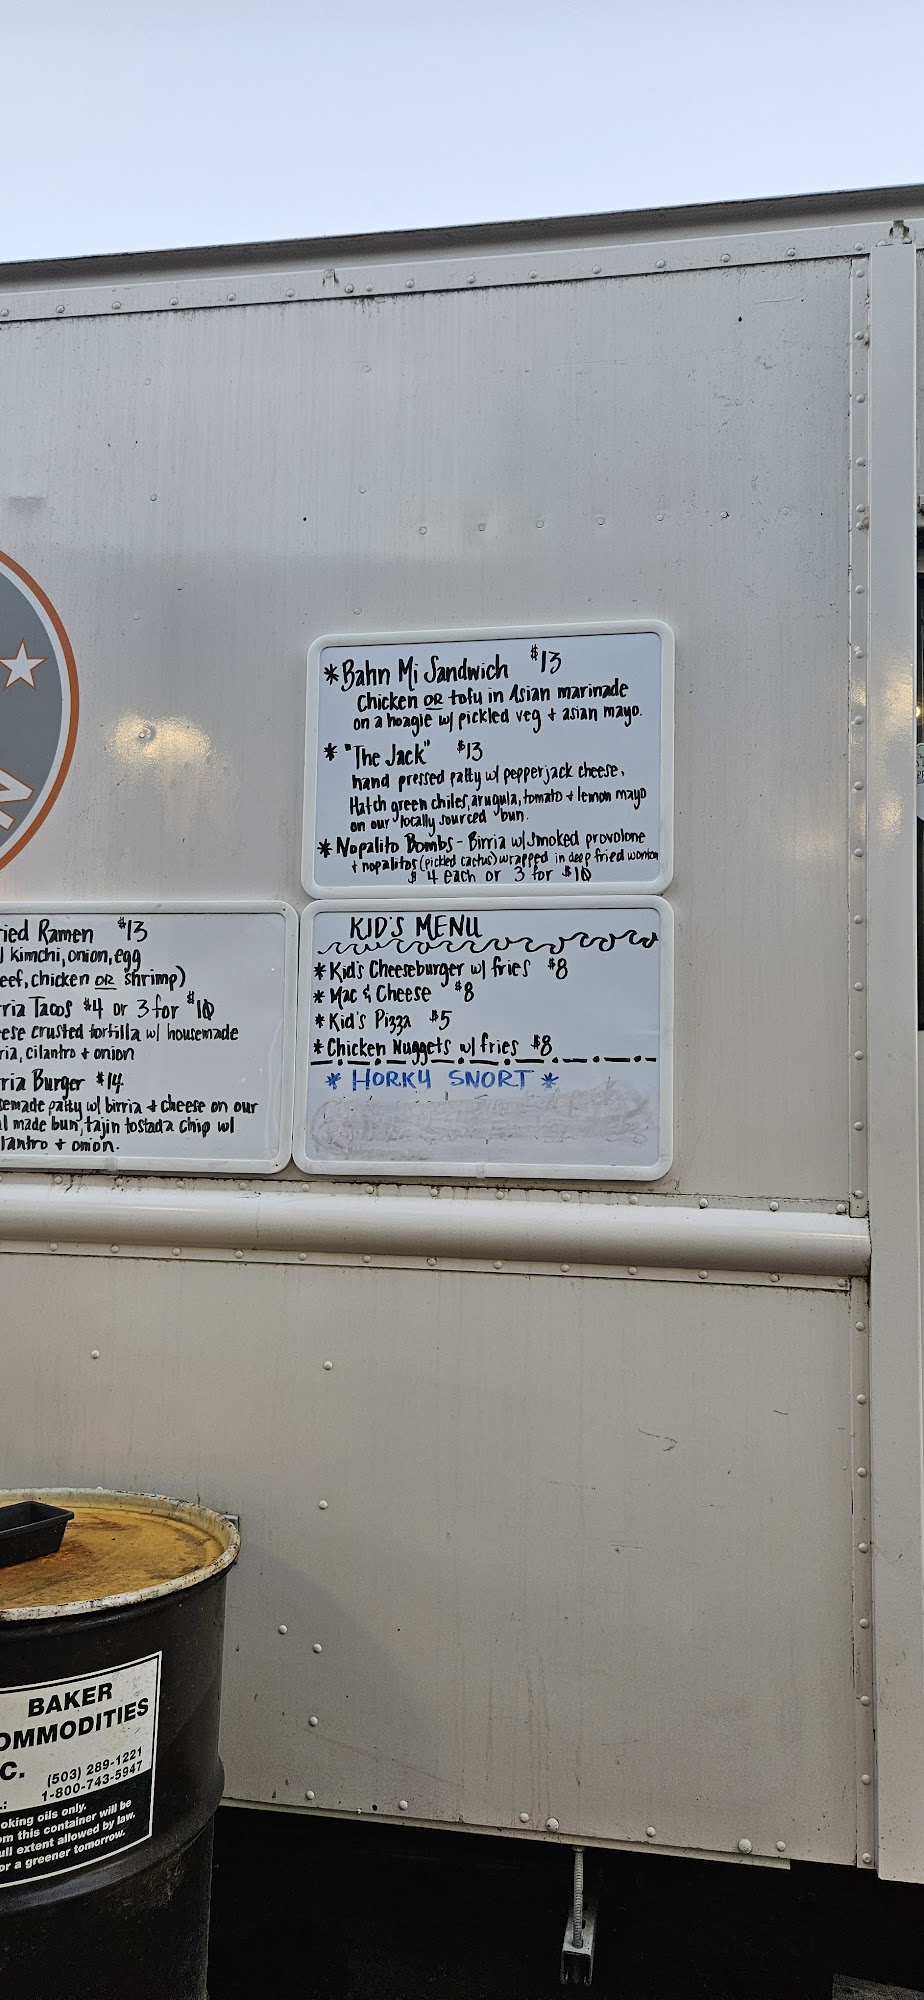 *Bahn Mi Sandwich $13
Chicken OR tofu in Asian marinade
on a hoagie w/ pickled veg + asian mayo.
* "The Jack" $13
hand pressed patty w/ pepperjack cheese,
Hatch green chiles, arugula, tomato + lemon mayo
on our locally sourced bun.
* Nopalito Bombs - Birria w/ smoked provolone
+ nopalitos (pickled cactus) wrapped in deep fried wonton
$4 each or 3 for $10
ried Ramen $13
kimchi, onion, egg
eef, chicken OR shrimp)
rria Tacos $4 or 3 for $10
eese crusted tortilla w/ housemade
ria, cilantro + onion
rria Burger $14
semade patty w/ birria + cheese on our
al made bun, tajin tostada chip w/
lantro + onion.
KID'S MENU
* Kid's Cheeseburger w/ fries $8
* Mac & Cheese $8
* Kid's Pizza $5
* Chicken Nuggets w/ fries $8
* HORKY SNORT *
N
BAKER
OMMODITIES
C.
(503) 289-1221
1-800-743-5947
oking oils only.
om this container will be
ull extent allowed by law.
or a greener tomorrow.